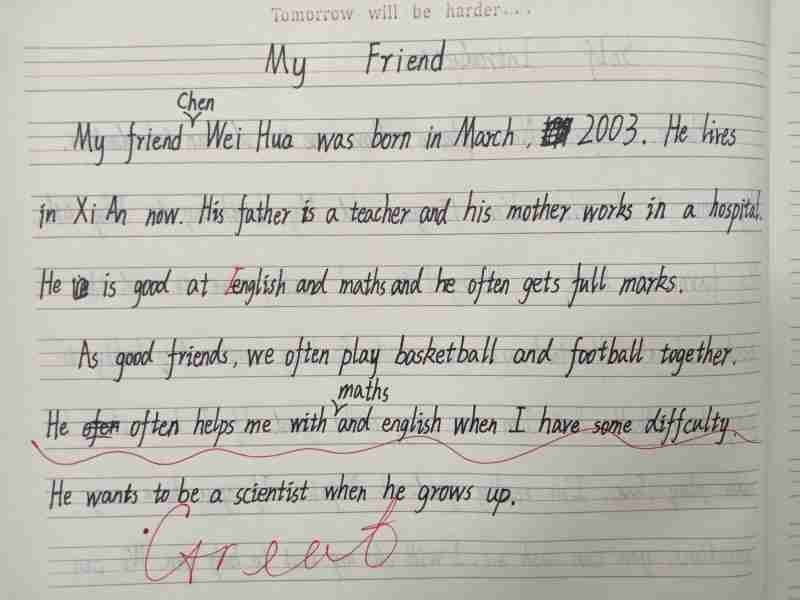 Tomorrow will be harder...
My Friend
My friend Chen Wei Hua was born in March, 2003. He lives
in Xi An now. His father is a teacher and his mother works in a hospital.
He is good at English and maths and he often gets full marks.
As good friends, we often play basketball and football together.
He often helps me with maths and english when I have some diffculty.
He wants to be a scientist when he grows up.
Great